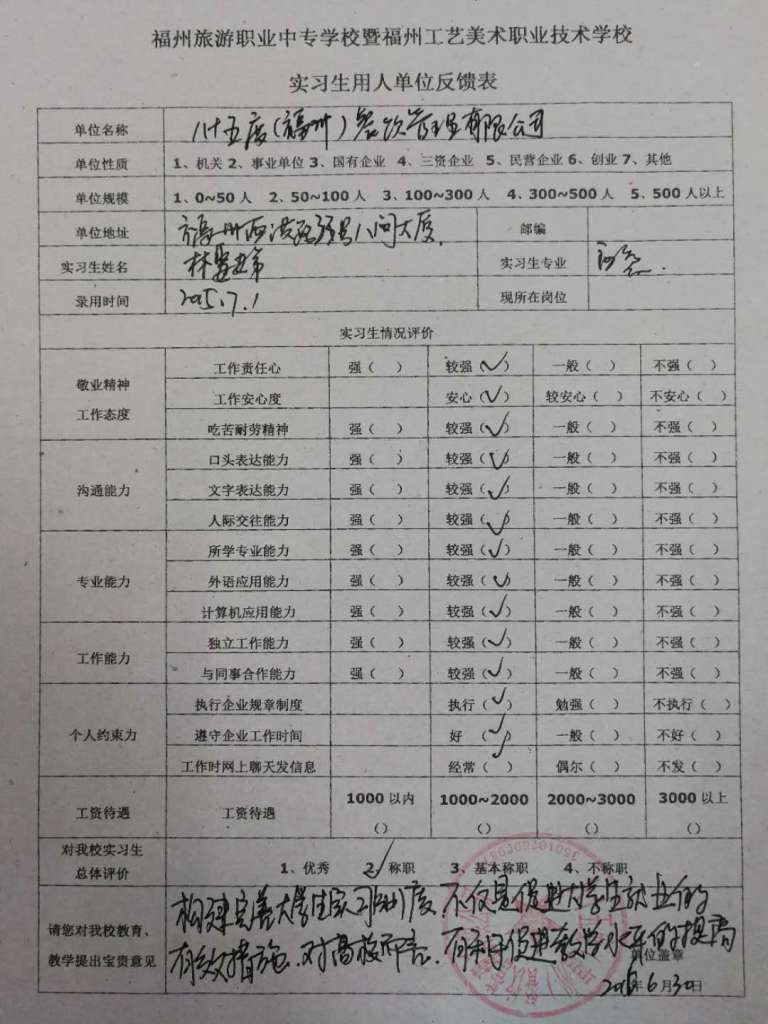 福州旅游职业中专学校暨福州工艺美术职业技术学校
实习生用人单位反馈表
单位名称 八十五度(福州)餐饮管理有限公司
单位性质 1、机关 2、事业单位 3、国有企业 4、三资企业 5、民营企业 6、创业 7、其他
单位规模 1、0~50人 2、50~100人 3、100~300人 4、300~500人 5、500人以上
单位地址 福州西洪路 大厦 邮编
实习生姓名 林 实习生专业
录用时间 2015.7.1 现所在岗位
实习生情况评价
敬业精神 工作态度
工作责任心 强( ) 较强(✓) 一般( ) 不强( )
工作安心度 安心(✓) 较安心( ) 不安心( )
吃苦耐劳精神 强( ) 较强(✓) 一般( ) 不强( )
沟通能力
口头表达能力 强( ) 较强(✓) 一般( ) 不强( )
文字表达能力 强( ) 较强(✓) 一般( ) 不强( )
人际交往能力 强( ) 较强(✓) 一般( ) 不强( )
专业能力
所学专业能力 强( ) 较强(✓) 一般( ) 不强( )
外语应用能力 强( ) 较强(✓) 一般( ) 不强( )
计算机应用能力 强( ) 较强(✓) 一般( ) 不强( )
工作能力
独立工作能力 强( ) 较强(✓) 一般( ) 不强( )
与同事合作能力 强( ) 较强(✓) 一般( ) 不强( )
个人约束力
执行企业规章制度 执行(✓) 勉强( ) 不执行( )
遵守企业工作时间 好(✓) 一般( ) 不好( )
工作时网上聊天发信息 经常(✓) 偶尔( ) 不发( )
工资待遇 工资待遇 1000以内 1000~2000 2000~3000 3000以上
() () () ()
对我校实习生
总体评价
1、优秀 2✓称职 3、基本称职 4、不称职
请您对我校教育、
教学提出宝贵意见
构建完善大学生实习制度,不仅是促进大学生就业的
有效措施.对高校而言,有利于促进教学水平的提高
单位盖章
年6月30日